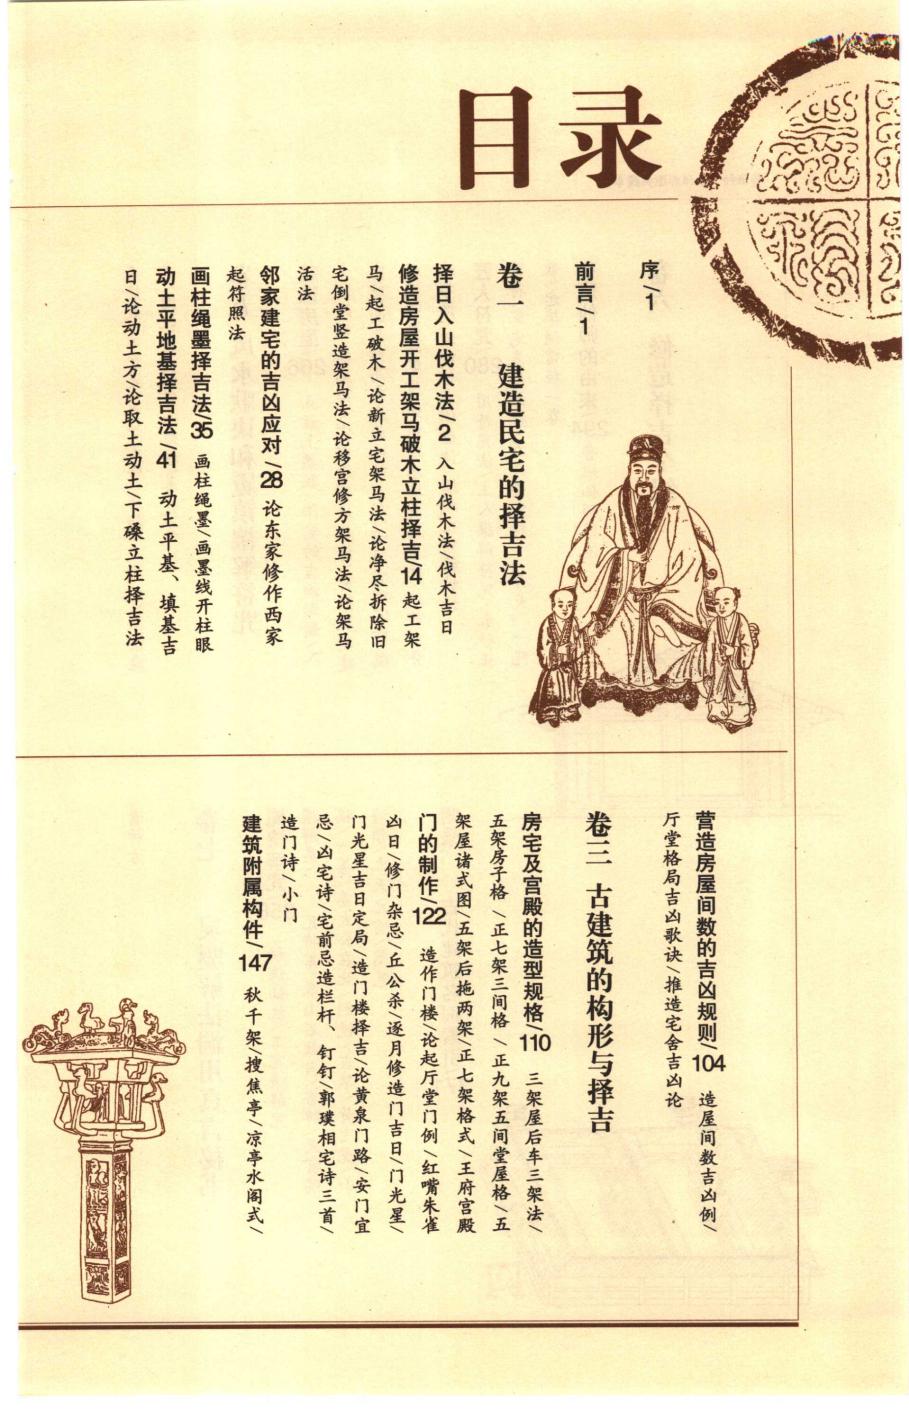 目录
序/1
前言/1
卷一 建造民宅的择吉法
择日入山伐木法/2 入山伐木法/伐木吉日
修造房屋开工架马破木立柱择吉/14 起工架
马/起工破木/论新立宅架马法/论净尽拆除旧
宅倒堂竖造架马法/论移宫修方架马法/论架马
活法
邻家建宅的吉凶应对/28 论东家修作西家
起符照法
画柱绳墨择吉法/35 画柱绳墨/画墨线开柱眼
动土平地基择吉法/41 动土平基、填基吉
日/论动土方/论取土动土/下磉立柱择吉法
营造房屋间数的吉凶规则/104 造屋间数吉凶例/
厅堂格局吉凶歌诀/推造宅舍吉凶论
卷三 古建筑的构形与择吉
房宅及宫殿的造型规格/110 三架屋后车三架法/
五架房子格/正七架三间格/正九架五间堂屋格/五
架屋诸式图/五架后拖两架/正七架格式/王府宫殿
门的制作/122 造作门楼/论起厅堂门例/红嘴朱雀
凶日/修门杂忌/丘公杀/逐月修造门吉日/门光星/
门光星吉日定局/造门楼择吉/论黄泉门路/安门宜
忌/凶宅诗/宅前忌造栏杆、钉钉/郭璞相宅诗三首/
造门诗/小门
建筑附属构件/147 秋千架/搜焦亭/凉亭水阁式/